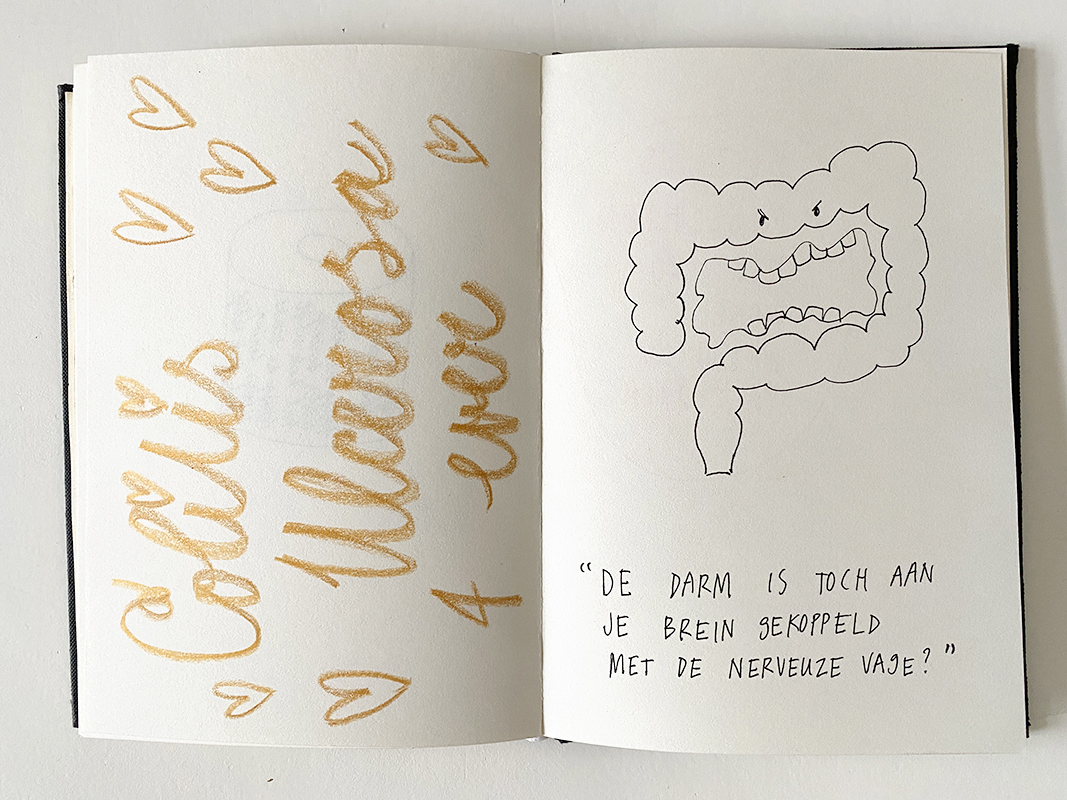 Colitis
Ulcerosa
4 ever
“DE DARM IS TOCH AAN
JE BREIN GEKOPPELD
MET DE NERVEUZE VAGE?”